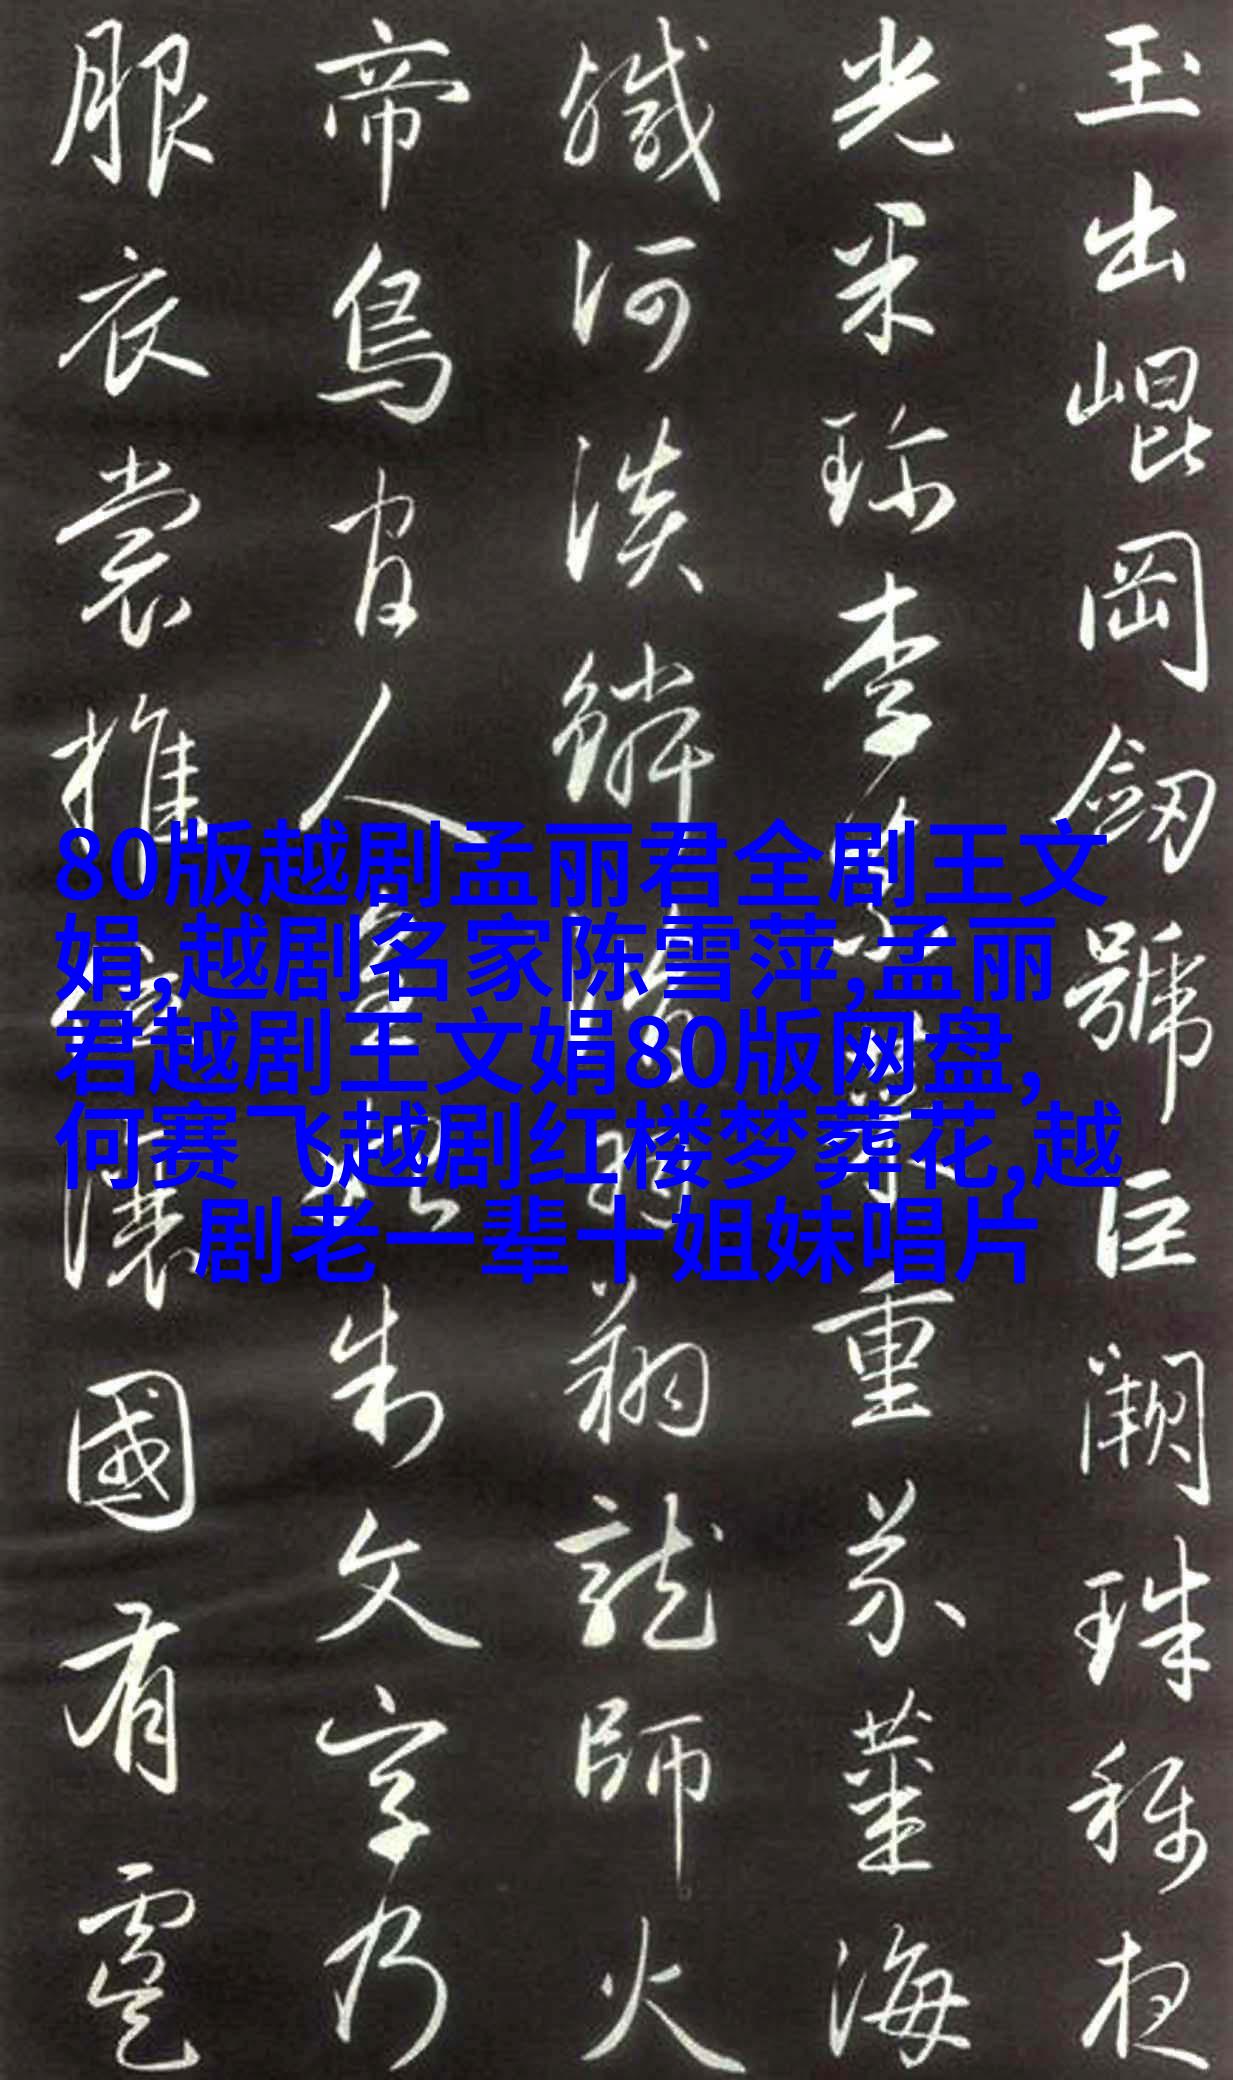 玉出崐岡劒號巨闕珠稱夜
光果珍李重芥薑海
鹹河淡鱗翔龍師火
帝鳥官人制文字乃
服衣裳推讓國有虞
80版越剧孟丽君全剧王文
娟,越剧名家陈雪萍,孟丽
君越剧王文娟80版网盘,
何赛飞越剧红楼梦葬花,越
剧老一辈十姐妹唱片